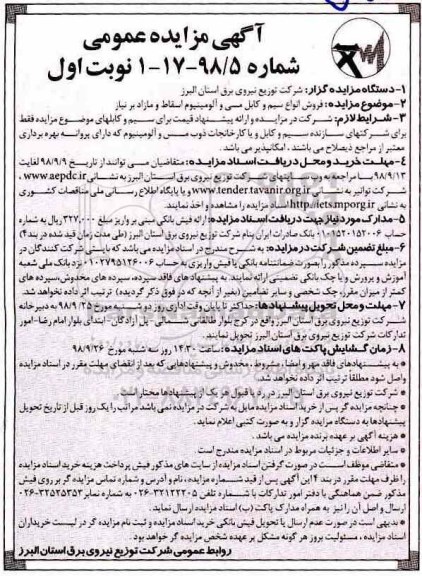 آگهی مزایده عمومی
شماره ۹۸/۵-۱۷-۱ نوبت اول
۱-دستگاه مزایده گزار: شرکت توزیع نیروی برق استان البرز
۲-موضوع مزایده: فروش انواع سیم و کابل مسی و آلومینیوم اسقاط و مازاد بر نیاز
۳- شرایط لازم: شرکت در مزایده و ارائه پیشنهاد قیمت برای سیم و کابلهای موضوع مزایده فقط
برای شرکتهای سازنده سیم و کابل و یا کارخانجات ذوب مس و آلومینیوم که دارای پروانه بهره برداری
معتبر از مراجع ذیصلاح می باشند، امکانپذیر می باشد.
۴-مهلت خرید و محل دریافت اسناد مزایده: متقاضیان می توانند از تاریخ ۹۸/۹/۹ لغایت
۹۸/۹/۱۳ با مراجعه به وب سایتهای شرکت توزیع نیروی برق استان البرز به نشانی www.aepdc.ir ،
شرکت توانیر به نشانی www.tender.tavanir.org.ir و یا پایگاه اطلاع رسانی ملی مناقصات کشوری
به نشانی http://iets.mporg.ir اسناد مزایده را مشاهده و اخذ نمایند.
۵-مدارک مورد نیاز جهت دریافت اسناد مزایده: ارائه فیش بانکی مبنی بر واریز مبلغ ۳۲۷,۰۰۰ ریال به شماره
حساب ۰۱۰۱۵۲۰۱۵۲۰۰۶ بانک صادرات ایران بنام شرکت توزیع نیروی برق استان البرز (طی مدت زمان قید شده در بند۴)
۶-مبلغ تضمین شرکت در مزایده: به شرح مندرج در اسناد مزایده می باشد که بایستی شرکت کنندگان در
مزایده سپرده مذکور را بصورت ضمانتنامه بانکی یا فیش واریزی به حساب ۰۱۰۲۷۹۵۱۲۶۰۰۶ نزد بانک ملی شعبه
آموزش و پرورش و یا چک بانکی تضمینی ارائه نمایند. به پیشنهاد های فاقد سپرده، سپرده های مخدوش، سپرده های
کمتر از میزان مقرر، چک شخصی و سایر تضامین (بغیر از آنچه که در فوق ذکر گردیده) ترتیب اثر داده نخواهد شد.
۷-مهلت و محل تحویل پیشنهادها: حداکثر تا پایان وقت اداری روز دو شنبه مورخ ۹۸/۹/۲۵ به دبیرخانه
شرکت توزیع نیروی برق استان البرز واقع در کرج بلوار طالقانی شمالی- پل آزادگان-ابتدای بلوار امام رضا- امور
تدارکات شرکت توزیع نیروی برق استان البرز تحویل نمایند.
۸- زمان گشایش پاکت های اسناد مزایده: ساعت ۱۴:۳۰ روز سه شنبه مورخ ۹۸/۹/۲۶
* به پیشنهادهای فاقد مهر و امضا، مشروط، مخدوش و پیشنهادهایی که بعد از انقضای مهلت مقرر در اسناد مزایده
واصل شود مطلقاً ترتیب اثر داده نخواهد شد.
* شرکت توزیع نیروی برق استان البرز در رد یا قبول هر یک از پیشنهادها مختار است.
* چنانچه مزایده گر پس از خرید اسناد مزایده مایل به شرکت در مزایده نمی باشد مراتب را یک روز قبل از تاریخ تحویل
پیشنهادها به دستگاه مزایده گزار و به صورت کتبی اعلام نماید.
* هزینه آگهی بر عهده برنده مزایده می باشد.
* سایر اطلاعات و جزئیات مربوط در اسناد مزایده مندرج است
* متقاضی موظف است در صورت گرفتن اسناد مزایده از سایت های مذکور فیش پرداخت هزینه خرید اسناد مزایده
را ظرف مهلت مقرر در بند ۴ این آگهی پس از قید شماره مزایده، نام و آدرس و شماره تماس مزایده گر بر روی فیش
مذکور ضمن هماهنگی با دفتر امور تدارکات با شماره تلفن ۳۲۱۲۲۲۰۵-۰۲۶ به شماره نمابر ۳۲۵۲۵۳۵۳-۰۲۶
ارسال و اصل آن را نیز به همراه مدارک پاکت (ب) اسناد مزایده ارسال نماید.
* بدیهی است در صورت عدم ارسال یا تحویل فیش بانکی خرید اسناد مزایده و ثبت نام مزایده گر در لیست خریداران
اسناد مزایده ، مسئولیت بروز هر گونه مشکل بر عهده شخص مزایده گر خواهد بود.
روابط عمومی شرکت توزیع نیروی برق استان البرز